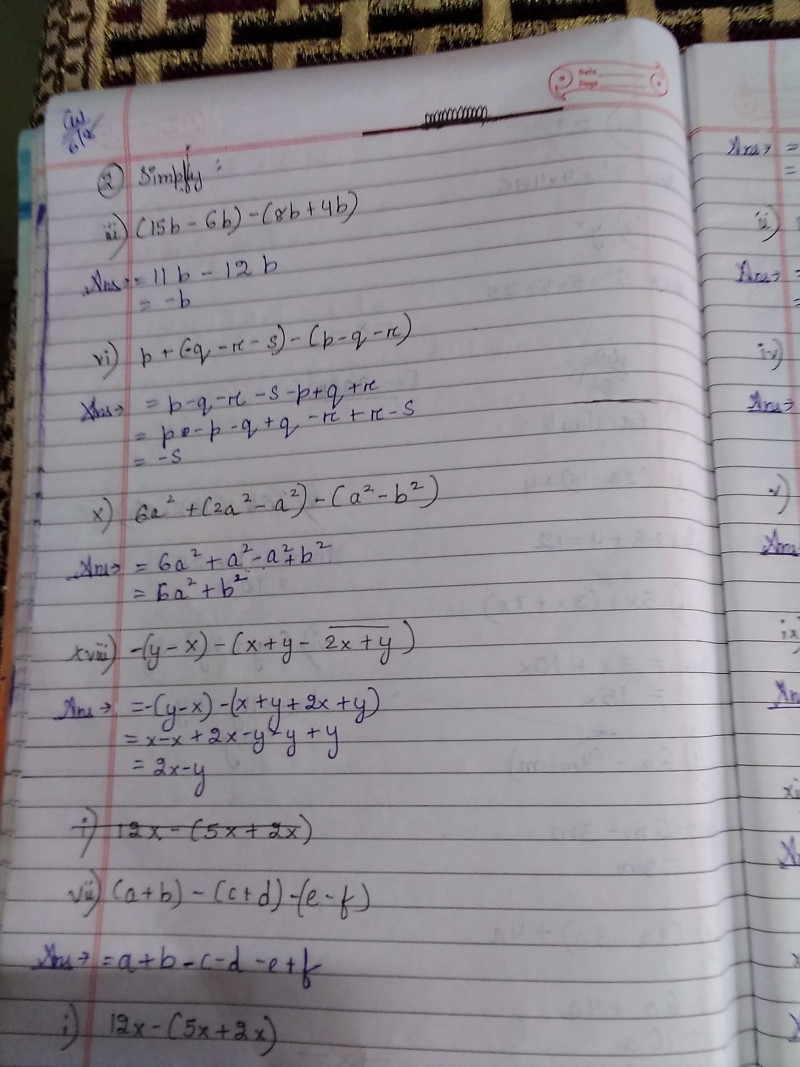 CW
6/12
Date
Page
② Simplify:
iii) (15b - 6b) - (8b + 4b)
Ans→ = 11b - 12b
= -b
vi) p + (-q - r - s) - (p - q - r)
Ans→ = p - q - r - s - p + q + r
= p - p - q + q - r + r - s
= -s
x) 6a² + (2a² - a²) - (a² - b²)
Ans→ = 6a² + a² - a² + b²
= 6a² + b²
xviii) -(y - x) - (x + y - 2x + y)
Ans→ = -(y - x) - (x + y + 2x + y)
= x - x + 2x - y - y + y
= 2x - y
i) 12x - (5x + 2x)
vii) (a + b) - (c + d) - (e - f)
Ans→ = a + b - c - d - e + f
i) 12x - (5x + 2x)
Ans→ =
=
ii)
Ans→ =
iv)
Ans→
v)
Ans→
ix
Ans
xi